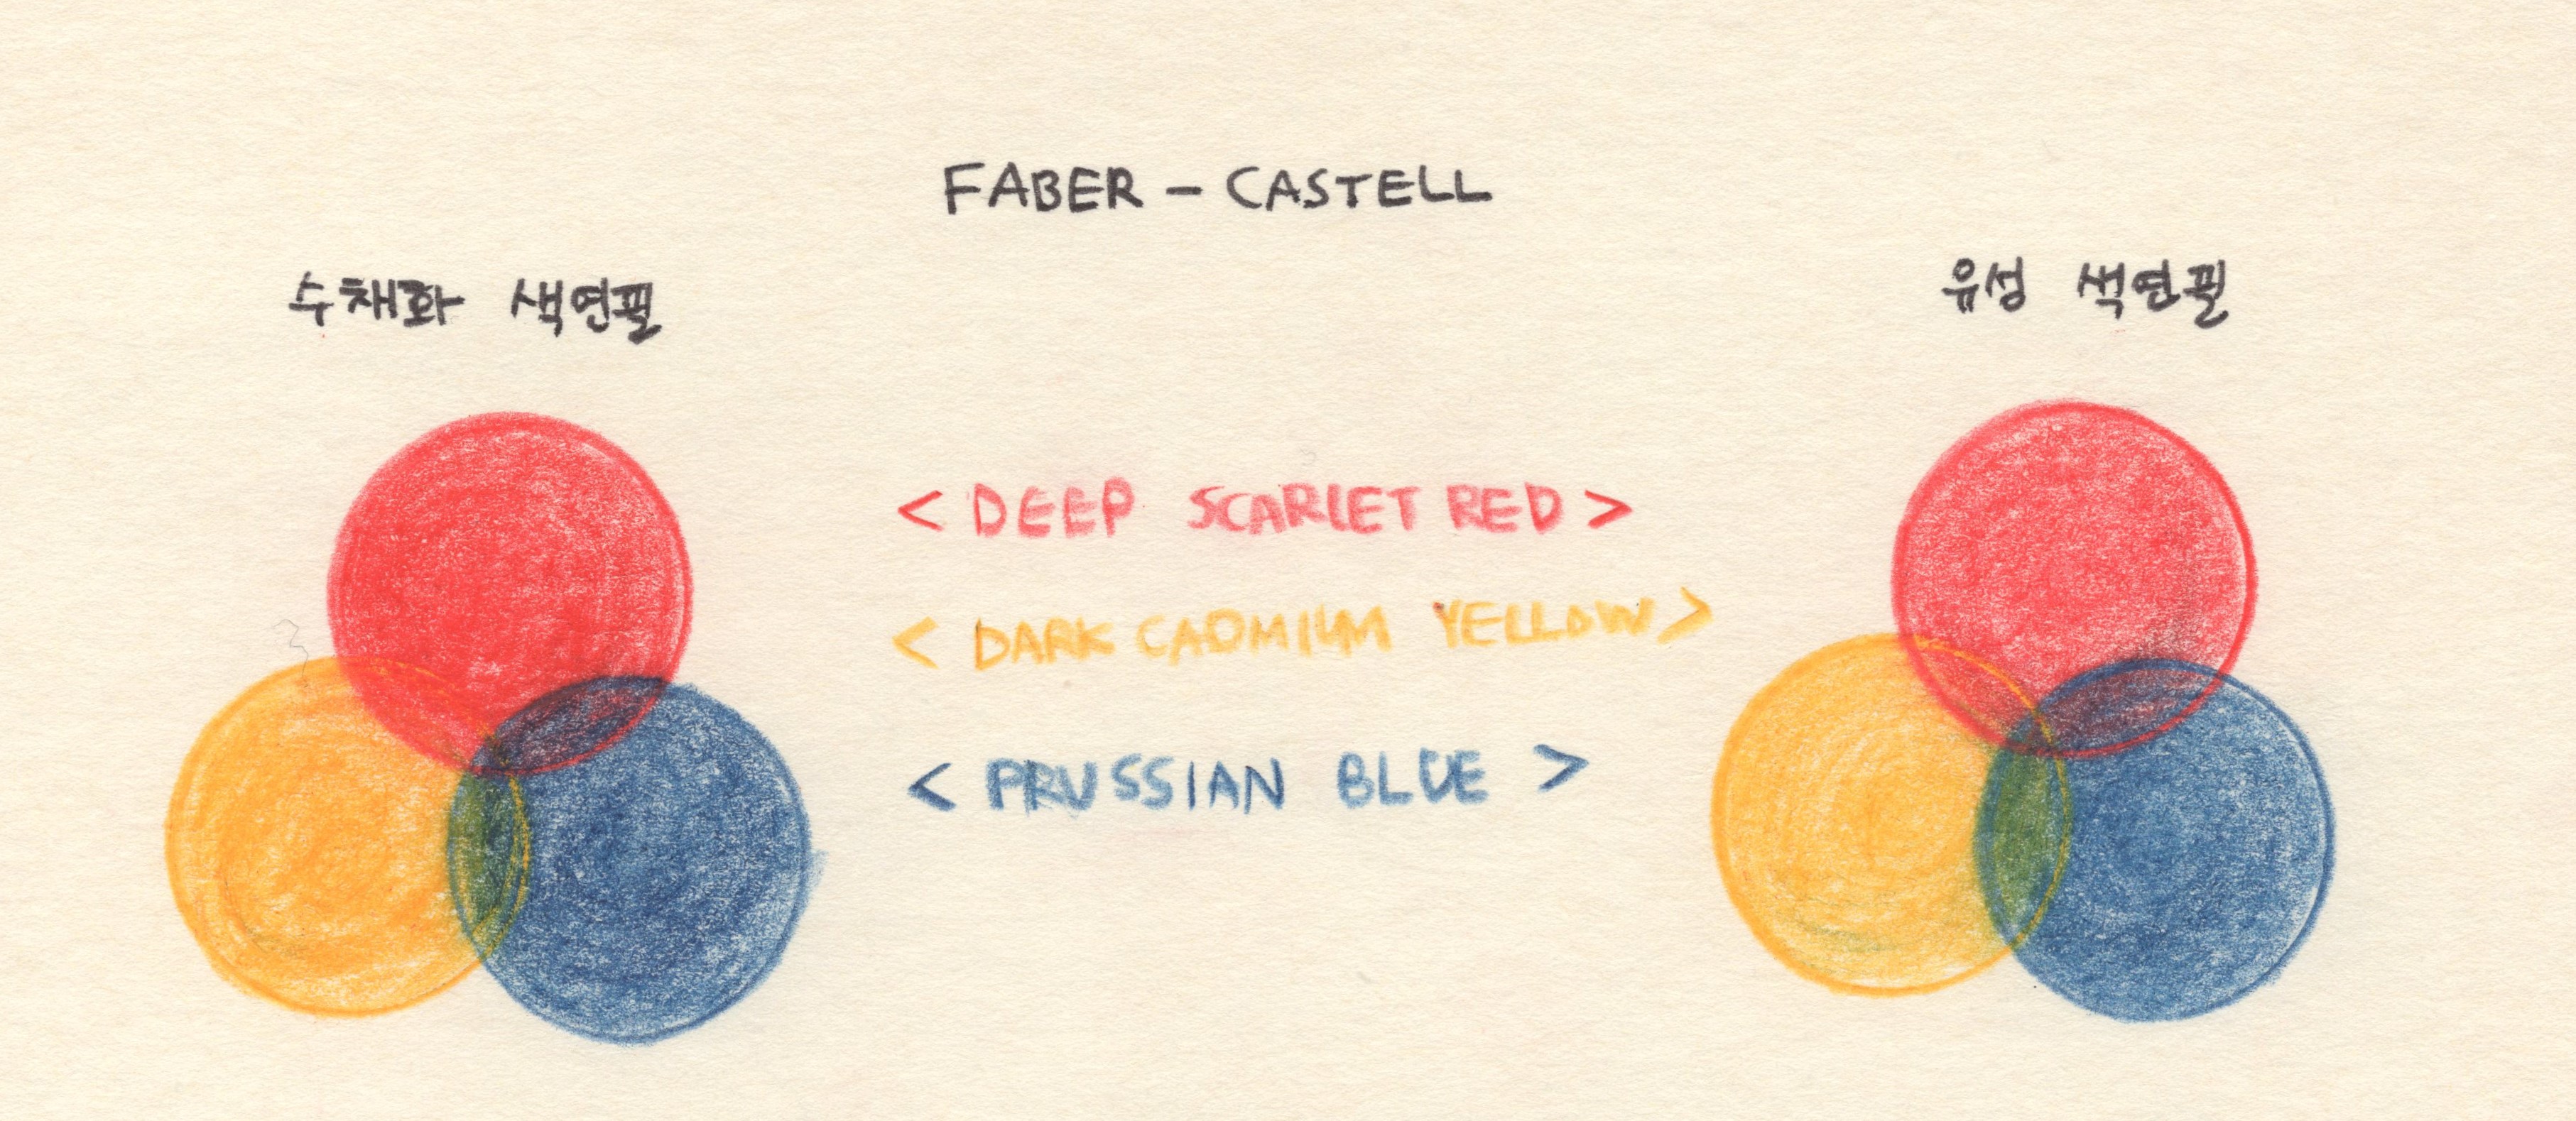 FABER - CASTELL
수채화 색연필
유성 색연필
< DEEP SCARLET RED >
< DARK CADMIUM YELLOW >
< PRUSSIAN BLUE >